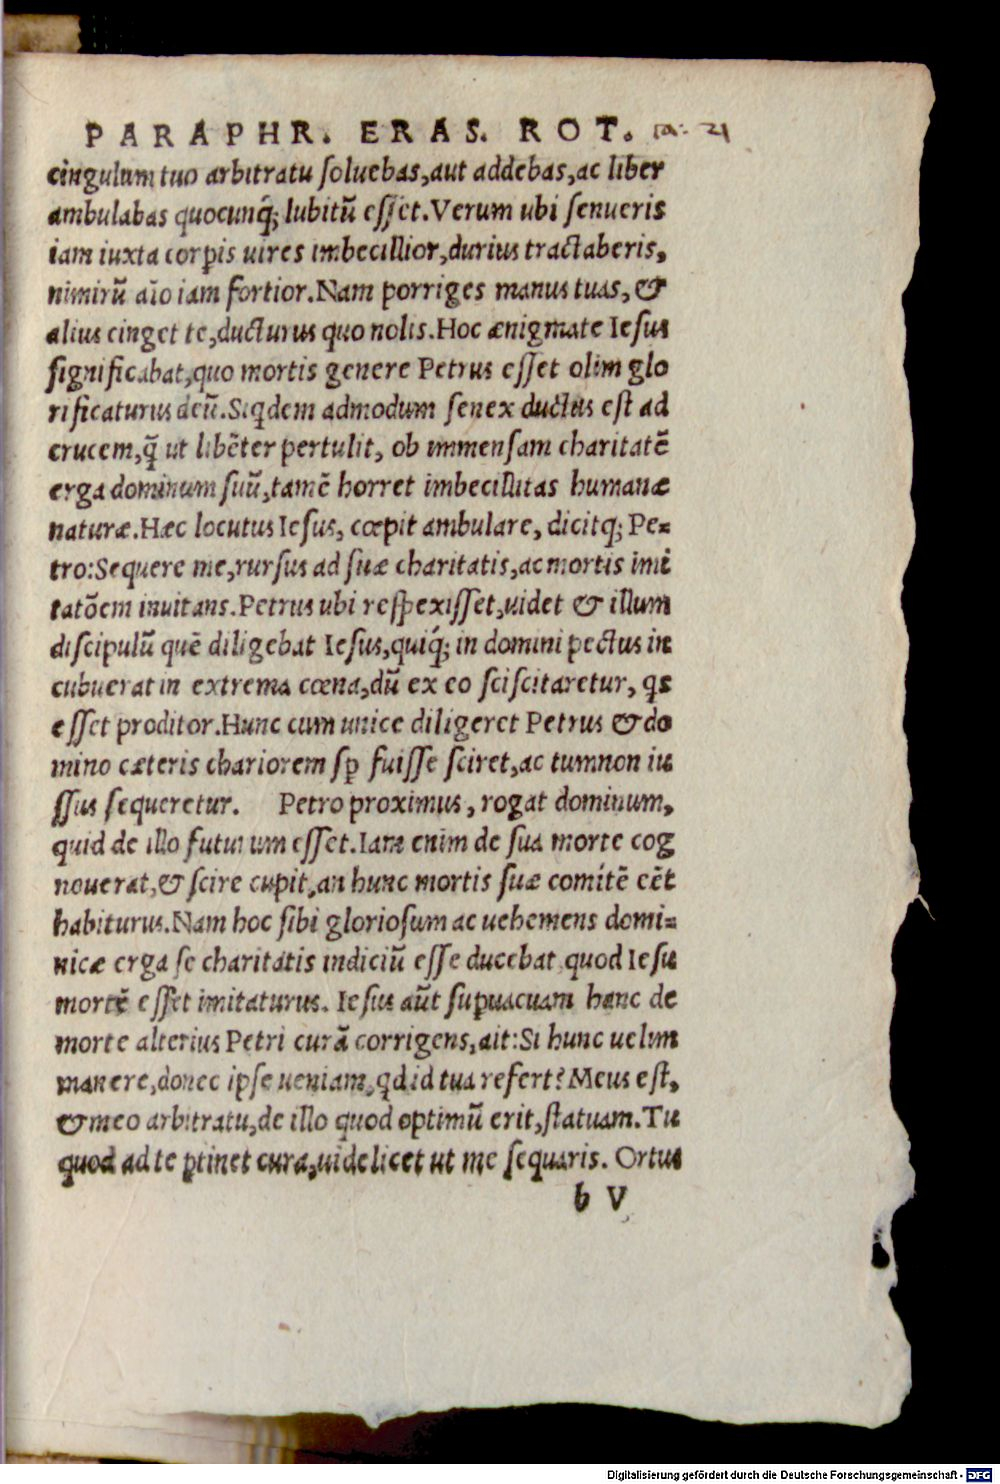 PARAPHR. ERAS. ROT.
cingulum tuo arbitratu ſoluebas, aut addebas, ac liber
ambulabas quocunq́; lubitū eſſet. Verum ubi ſenueris
iam iuxta corꝑis uires imbecillior, durius tractaberis,
nimirū aīo iam fortior. Nam porriges manus tuas, &
alius cinget te, ducturus quo nolis. Hoc ænigmate Ieſus
ſignificabat, quo mortis genere Petrus eſſet olim glo
rificaturus deū. Siqdem admodum ſenex ductus eſt ad
crucem, q̃ ut libēter pertulit, ob immenſam charitatē
erga dominum ſuū, tamē horret imbecillitas humanæ
naturæ. Hæc locutus Ieſus, cœpit ambulare, dicitq; Pe=
tro: Sequere me, rurſus ad ſuæ charitatis, ac mortis imi
tatōem inuitans. Petrus ubi reſpexiſſet, uidet & illum
diſcipulū quē diligebat Ieſus, quiq́; in domini pectus in
cubuerat in extrema cœna, dū ex eo ſciſcitaretur, qs
eſſet proditor. Hunc cum unice diligeret Petrus & do
mino cæteris chariorem ſꝑ fuiſſe ſciret, ac tum non iu
ſſus ſequeretur. Petro proximus, rogat dominum,
quid de illo futurum eſſet. Iam enim de ſua morte cog
nouerat, & ſcire cupit, an hunc mortis ſuæ comitē eēt
habiturus. Nam hoc ſibi glorioſum ac uehemens domi=
nicæ erga ſe charitatis indiciū eſſe ducebat quod Ieſu
mortē eſſet imitaturus. Ieſus aūt ſuꝑuacuam hanc de
morte alterius Petri curā corrigens, ait: Si hunc uelim
manere, donec ipſe ueniam, qd id tua refert? Meus eſt,
& meo arbitratu, de illo quod optimū erit, ſtatuam. Tu
quod ad te ꝑtinet cura, uidelicet ut me ſequaris. Ortus
b V
Digitalisierung gefördert durch die Deutsche Forschungsgemeinschaft - DFG